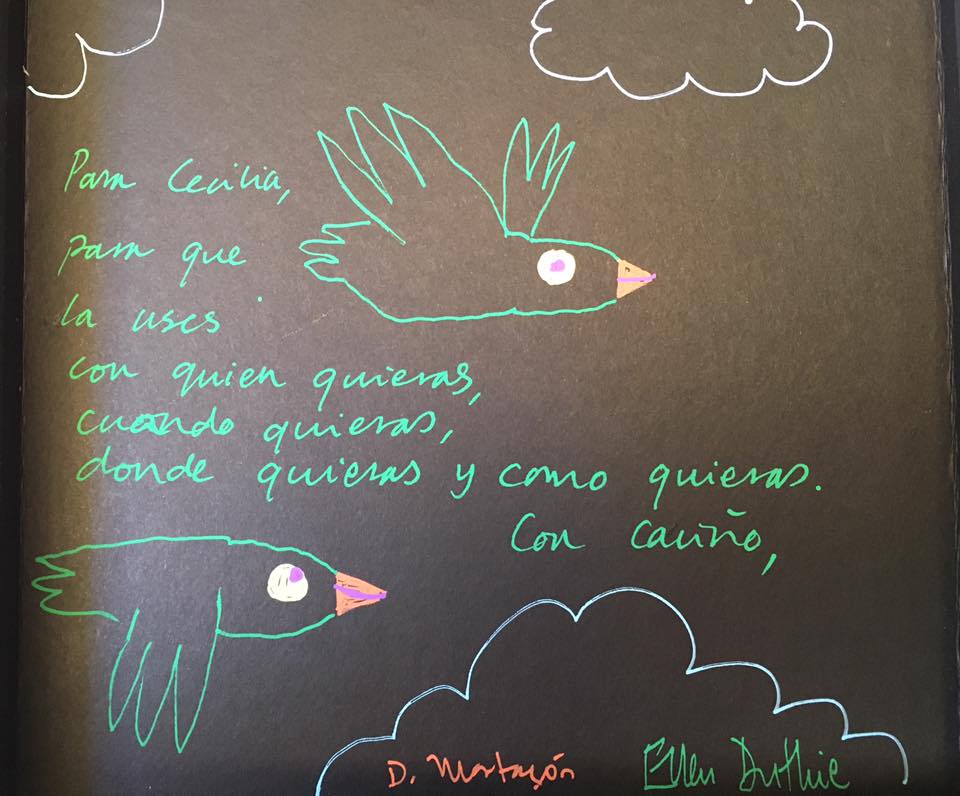 Para Cecilia,
para que
la uses
con quien quieras,
cuando quieras,
donde quieras y como quieras.
Con cariño,
D. Martagón Ellen Duthie